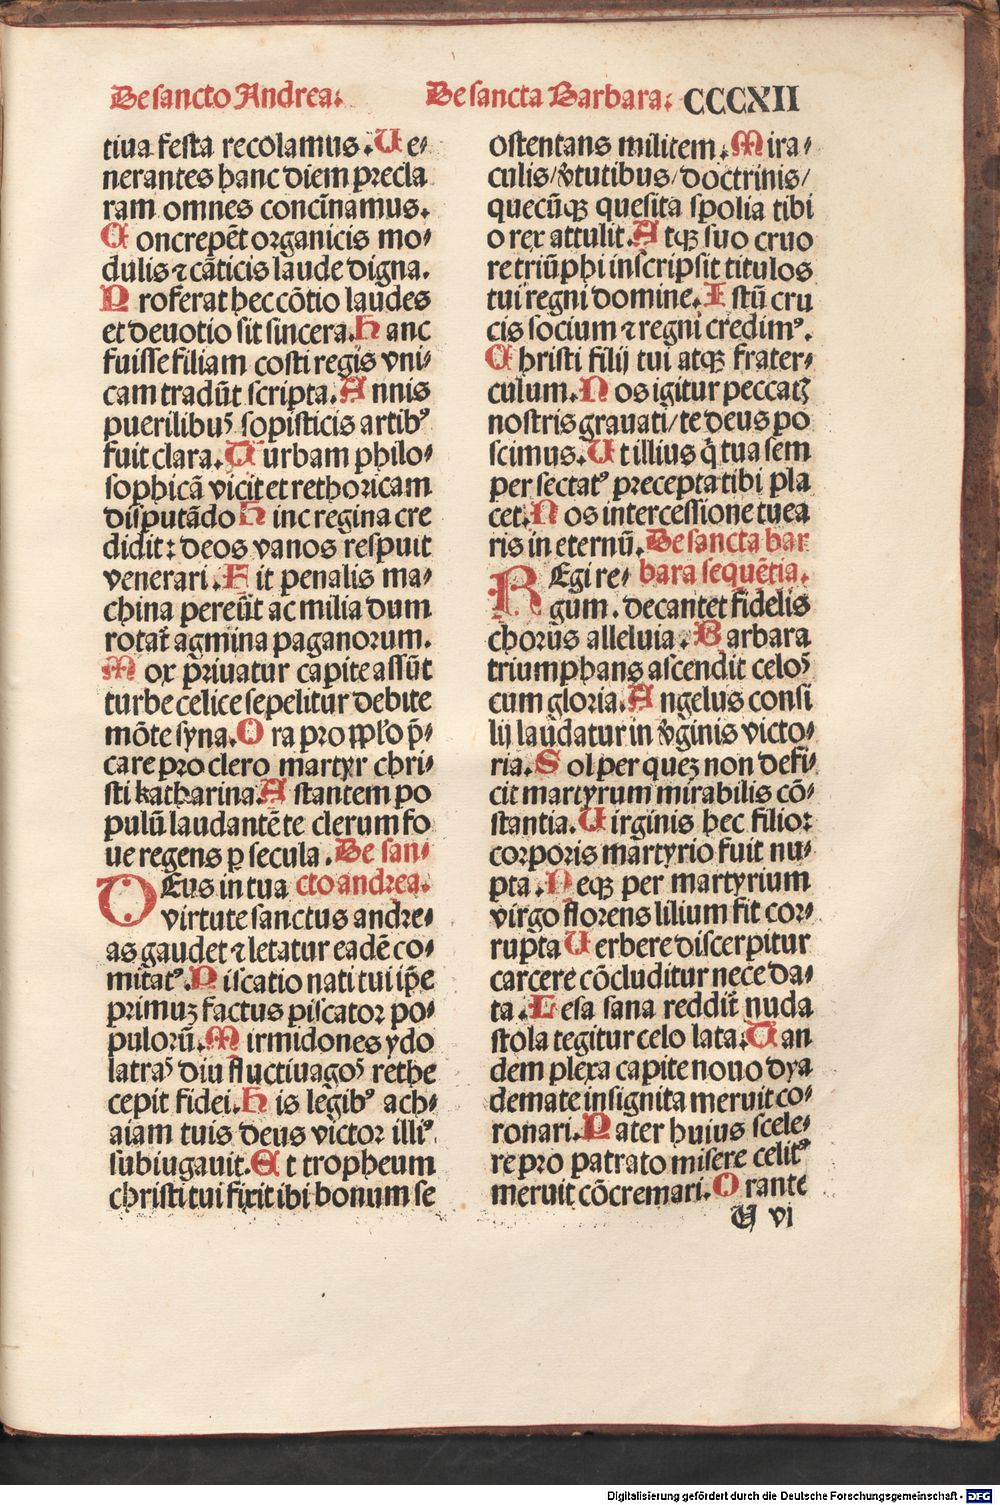 De sancto Andrea. De sancta Barbara. CCCXII
tiua festa recolamus. Ue⸗
nerantes hanc diem precla
ram omnes concĩnamus.
Concrepẽt organicis mo⸗
dulis ⁊ cãticis laude digna.
Proferat hec cõtio laudes
et deuotio sit sincera. Hanc
fuisse filiam costi regis vni⸗
cam tradũt scripta. Annis
puerilibus sopisticis artibꝰ
fuit clara. Turbam philo⸗
sophicã vicit et rethoricam
disputãdo Hinc regina cre
didit: deos vanos respuit
venerari. Fit penalis ma⸗
china pereũt ac milia dum
rotat̃ agmina paganorum.
Mox priuatur capite assũt
turbe celice sepelitur debite
mõte syna. Ora pro ppl̃o p̃⸗
care pro clero martyr chri⸗
sti katharina. Astantem po
pulũ laudantẽ te clerum fo
ue regens ꝑ secula. De san⸗
DEus in tua cto andrea.
virtute sanctus andre⸗
as gaudet ⁊ letatur eadẽ co⸗
mitatꝰ. Piscatio nati tui ip̃e
primuȝ factus piscator po⸗
pulorũ. Mirmidones ydo
latras diu fluctiuagos rethe
cepit fidei. His legibꝰ ach⸗
aiam tuis deus victor illiꝰ
subiugauit. Et tropheum
christi tui fixit ibi bonum se
ostentans militem. Mira⸗
culis/ ṽtutibus/ doctrinis/
quecũqꝫ quesita spolia tibi
o rex attulit. Atqꝫ suo cruo
re triũphi inscripsit titulos
tui regni domine. Istũ cru
cis socium ⁊ regni credimꝰ.
Christi filij tui atqꝫ frater⸗
culum. Nos igitur peccatꝭ
nostris grauati/ te deus po
scimus. Ut illius q̃ tua sem
per sectatꝰ precepta tibi pla
cet. Nos intercessione tuea
ris in eternũ. De sancta bar
REgi re⸗ bara sequẽtia.
gum. decantet fidelis
chorus alleluia. Barbara
triumphans ascendit celos
cum gloria. Angelus consi
lij laudatur in ṽginis victo⸗
ria. Sol per queȝ non defi⸗
cit martyrum mirabilis cõ⸗
stantia. Uirginis hec filior
corporis martyrio fuit nu⸗
pta. Neqꝫ per martyrium
virgo florens lilium fit cor⸗
rupta Uerbere discerpitur
carcere cõcluditur nece da⸗
ta. Lesa sana reddit̃ nuda
stola tegitur celo lata. Tan
dem plexa capite nouo dya
demate insignita meruit co⸗
ronari. Pater huius scele⸗
re pro patrato misere celitꝰ
meruit cõcremari. Orante
U vi
Digitalisierung gefördert durch die Deutsche Forschungsgemeinschaft - DFG